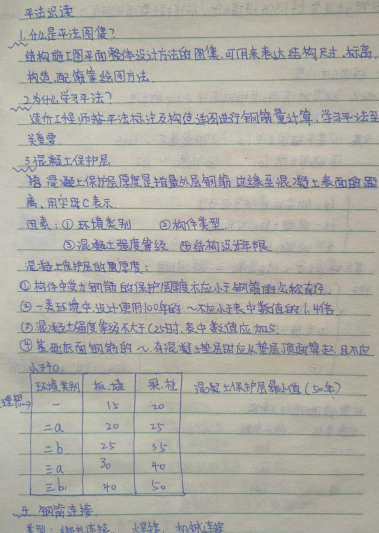 平法识读
1.什么是平法图集?
结构施工图平面整体设计方法的图集,可用来表达结构尺寸,标高,
构造,配筋等绘图方法.
2.为什么学习平法?
造价工程师按平法标注及构造详图进行钢筋量计算,学习平法至
关重要
3.混凝土保护层
指混凝土保护层厚度是指最外层钢筋边缘至混凝土表面的距
离,用字母C表示
因素:①环境类别 ②构件类型
③混凝土强度等级 ④结构设计年限
混凝土保护层的厚度:
①构件中受力钢筋的保护层厚度不应小于钢筋的公称直径.
②一类环境中,设计使用100年的~不应小于表中数值的1.4倍
③混凝土强度等级不大于C25时,表中数值应加5.
④基础底面钢筋的~,有混凝土垫层时应从垫层顶面算起,且不应
小于40.
环境类别 板.墙 梁.柱 混凝土保护层最小值(50年)
理想→ 一 15 20
二a 20 25
二b 25 35
三a 30 40
三b 40 50
4.钢筋连接
类型:绑扎连接、焊接、机械连接